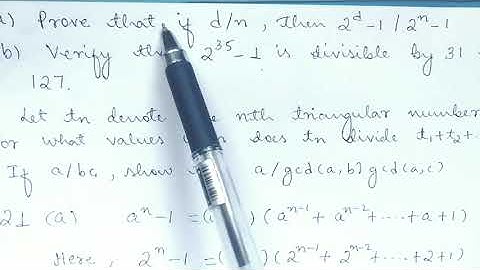 a) Prove that if d/n, then 2^d-1 / 2^n-1
b) Verify 2^35-1 is divisible by 31
127.
Let tn denote nth triangular number
what values does tn divide t1+t2+..
If a/bc, show a/gcd(a,b) gcd(a,c)
21 (a) a^n-1 = ( )(a^n-1 + a^n-2 + ..... + a + 1)
Here, 2^n-1 = ( )(2^n-1 + 2^n-2 + .... + 2 + 1)